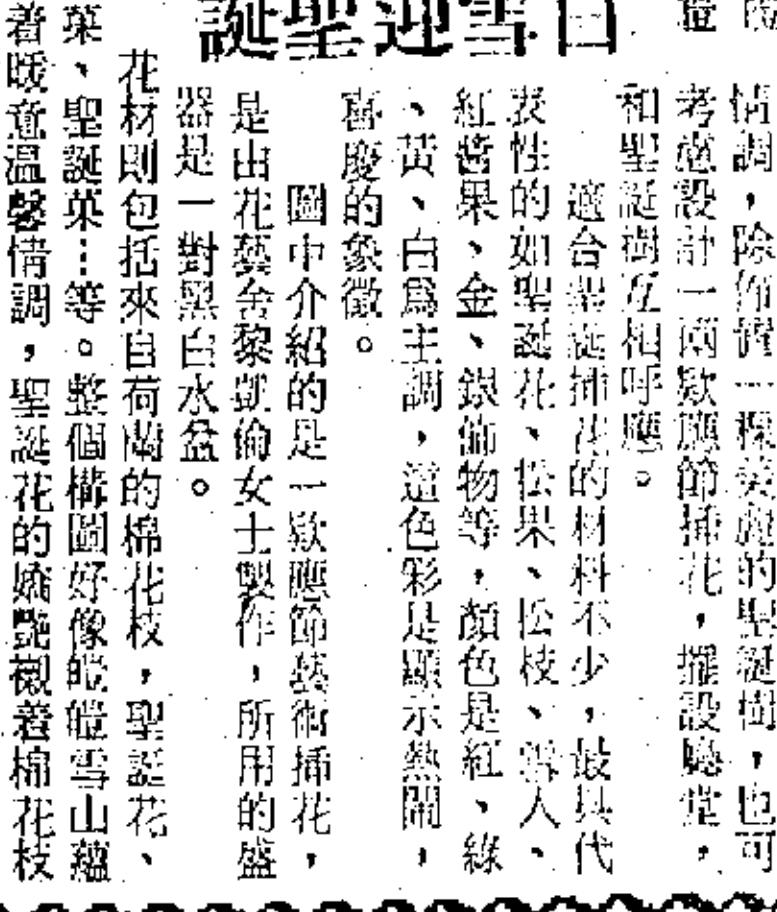 誕聖迎雪白
情調，除佈置一棵美麗的聖誕樹，也可
考慮設計一兩欵應節插花，擺設廳堂，
和聖誕樹互相呼應。
適合聖誕插花的材料不少，最具代
表性的如聖誕花、松果、松枝、雪人、
紅醬果、金、銀飾物等，顏色是紅、綠
、黃、白爲主調，這色彩是顯示熱鬧，
喜慶的象徵。
圖中介紹的是一欵應節藝術插花，
是由花藝舍黎凱倫女士製作，所用的盛
器是一對黑白水盆。
花材則包括來自荷蘭的棉花枝，聖誕花、
菓、聖誕菓…等。整個構圖好像皚皚雪山蘊
着暖意溫馨情調，聖誕花的嬌艷襯着棉花枝